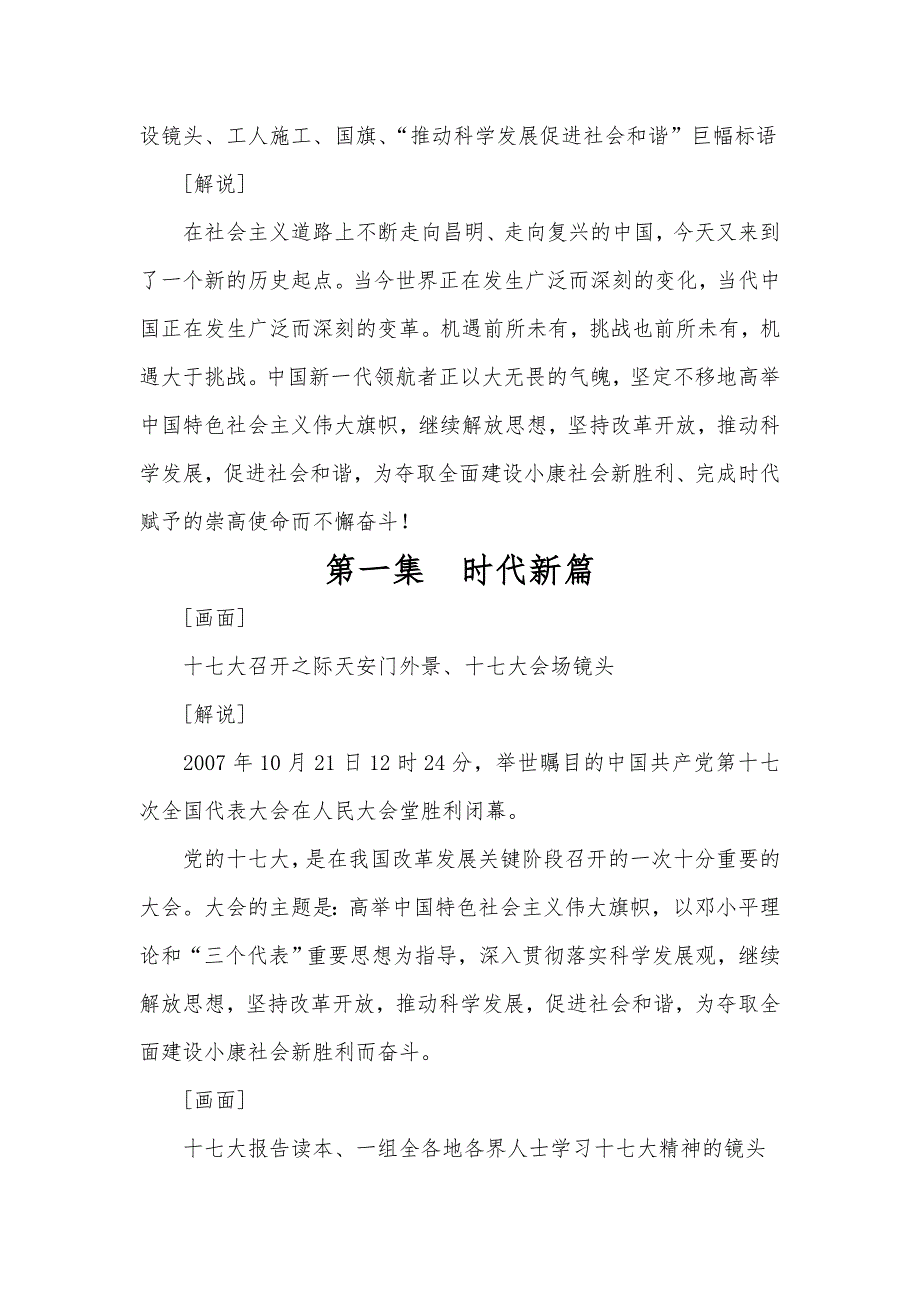 设镜头、工人施工、国旗、“推动科学发展促进社会和谐”巨幅标语
[解说]
在社会主义道路上不断走向昌明、走向复兴的中国，今天又来到
了一个新的历史起点。当今世界正在发生广泛而深刻的变化，当代中
国正在发生广泛而深刻的变革。机遇前所未有，挑战也前所未有，机
遇大于挑战。中国新一代领航者正以大无畏的气魄，坚定不移地高举
中国特色社会主义伟大旗帜，继续解放思想，坚持改革开放，推动科
学发展，促进社会和谐，为夺取全面建设小康社会新胜利、完成时代
赋予的崇高使命而不懈奋斗！
第一集　时代新篇
[画面]
十七大召开之际天安门外景、十七大会场镜头
[解说]
2007 年 10 月 21 日 12 时 24 分，举世瞩目的中国共产党第十七
次全国代表大会在人民大会堂胜利闭幕。
党的十七大，是在我国改革发展关键阶段召开的一次十分重要的
大会。大会的主题是：高举中国特色社会主义伟大旗帜，以邓小平理
论和“三个代表”重要思想为指导，深入贯彻落实科学发展观，继续
解放思想，坚持改革开放，推动科学发展，促进社会和谐，为夺取全
面建设小康社会新胜利而奋斗。
[画面]
十七大报告读本、一组全各地各界人士学习十七大精神的镜头